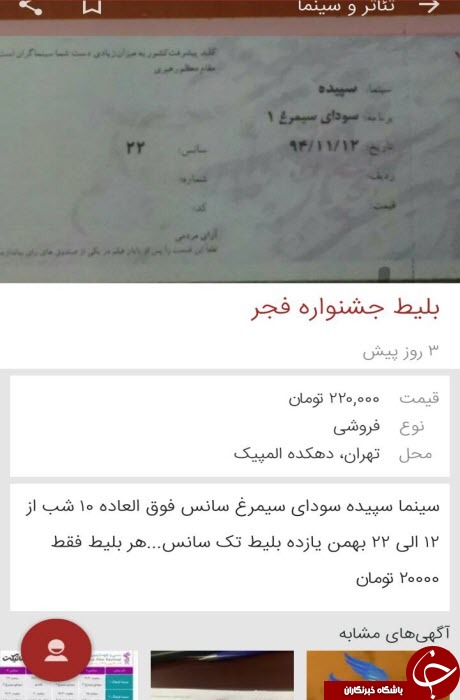 تئاتر و سینما
کلید پیشرفت کشور به میزان زیادی دست شما سینماگران است
مقام معظم رهبری
سینما: سپیده
برنامه: سودای سیمرغ ۱
تاریخ: ۹۴/۱۱/۱۲ سانس: ۲۲
ردیف: شماره:
قیمت: کد:
آرای مردمی
لطفا این قسمت را پس از پایان فیلم در یکی از صندوق های رای بیاندازید
بلیط جشنواره فجر
۳ روز پیش
قیمت ۲۲۰,۰۰۰ تومان
نوع فروشی
محل تهران، دهکده المپیک
سینما سپیده سودای سیمرغ سانس فوق العاده ۱۰ شب از
۱۲ الی ۲۲ بهمن یازده بلیط تک سانس...هر بلیط فقط
۲۰۰۰۰ تومان
آگهی‌های مشابه
باشگاه خبرنگاران